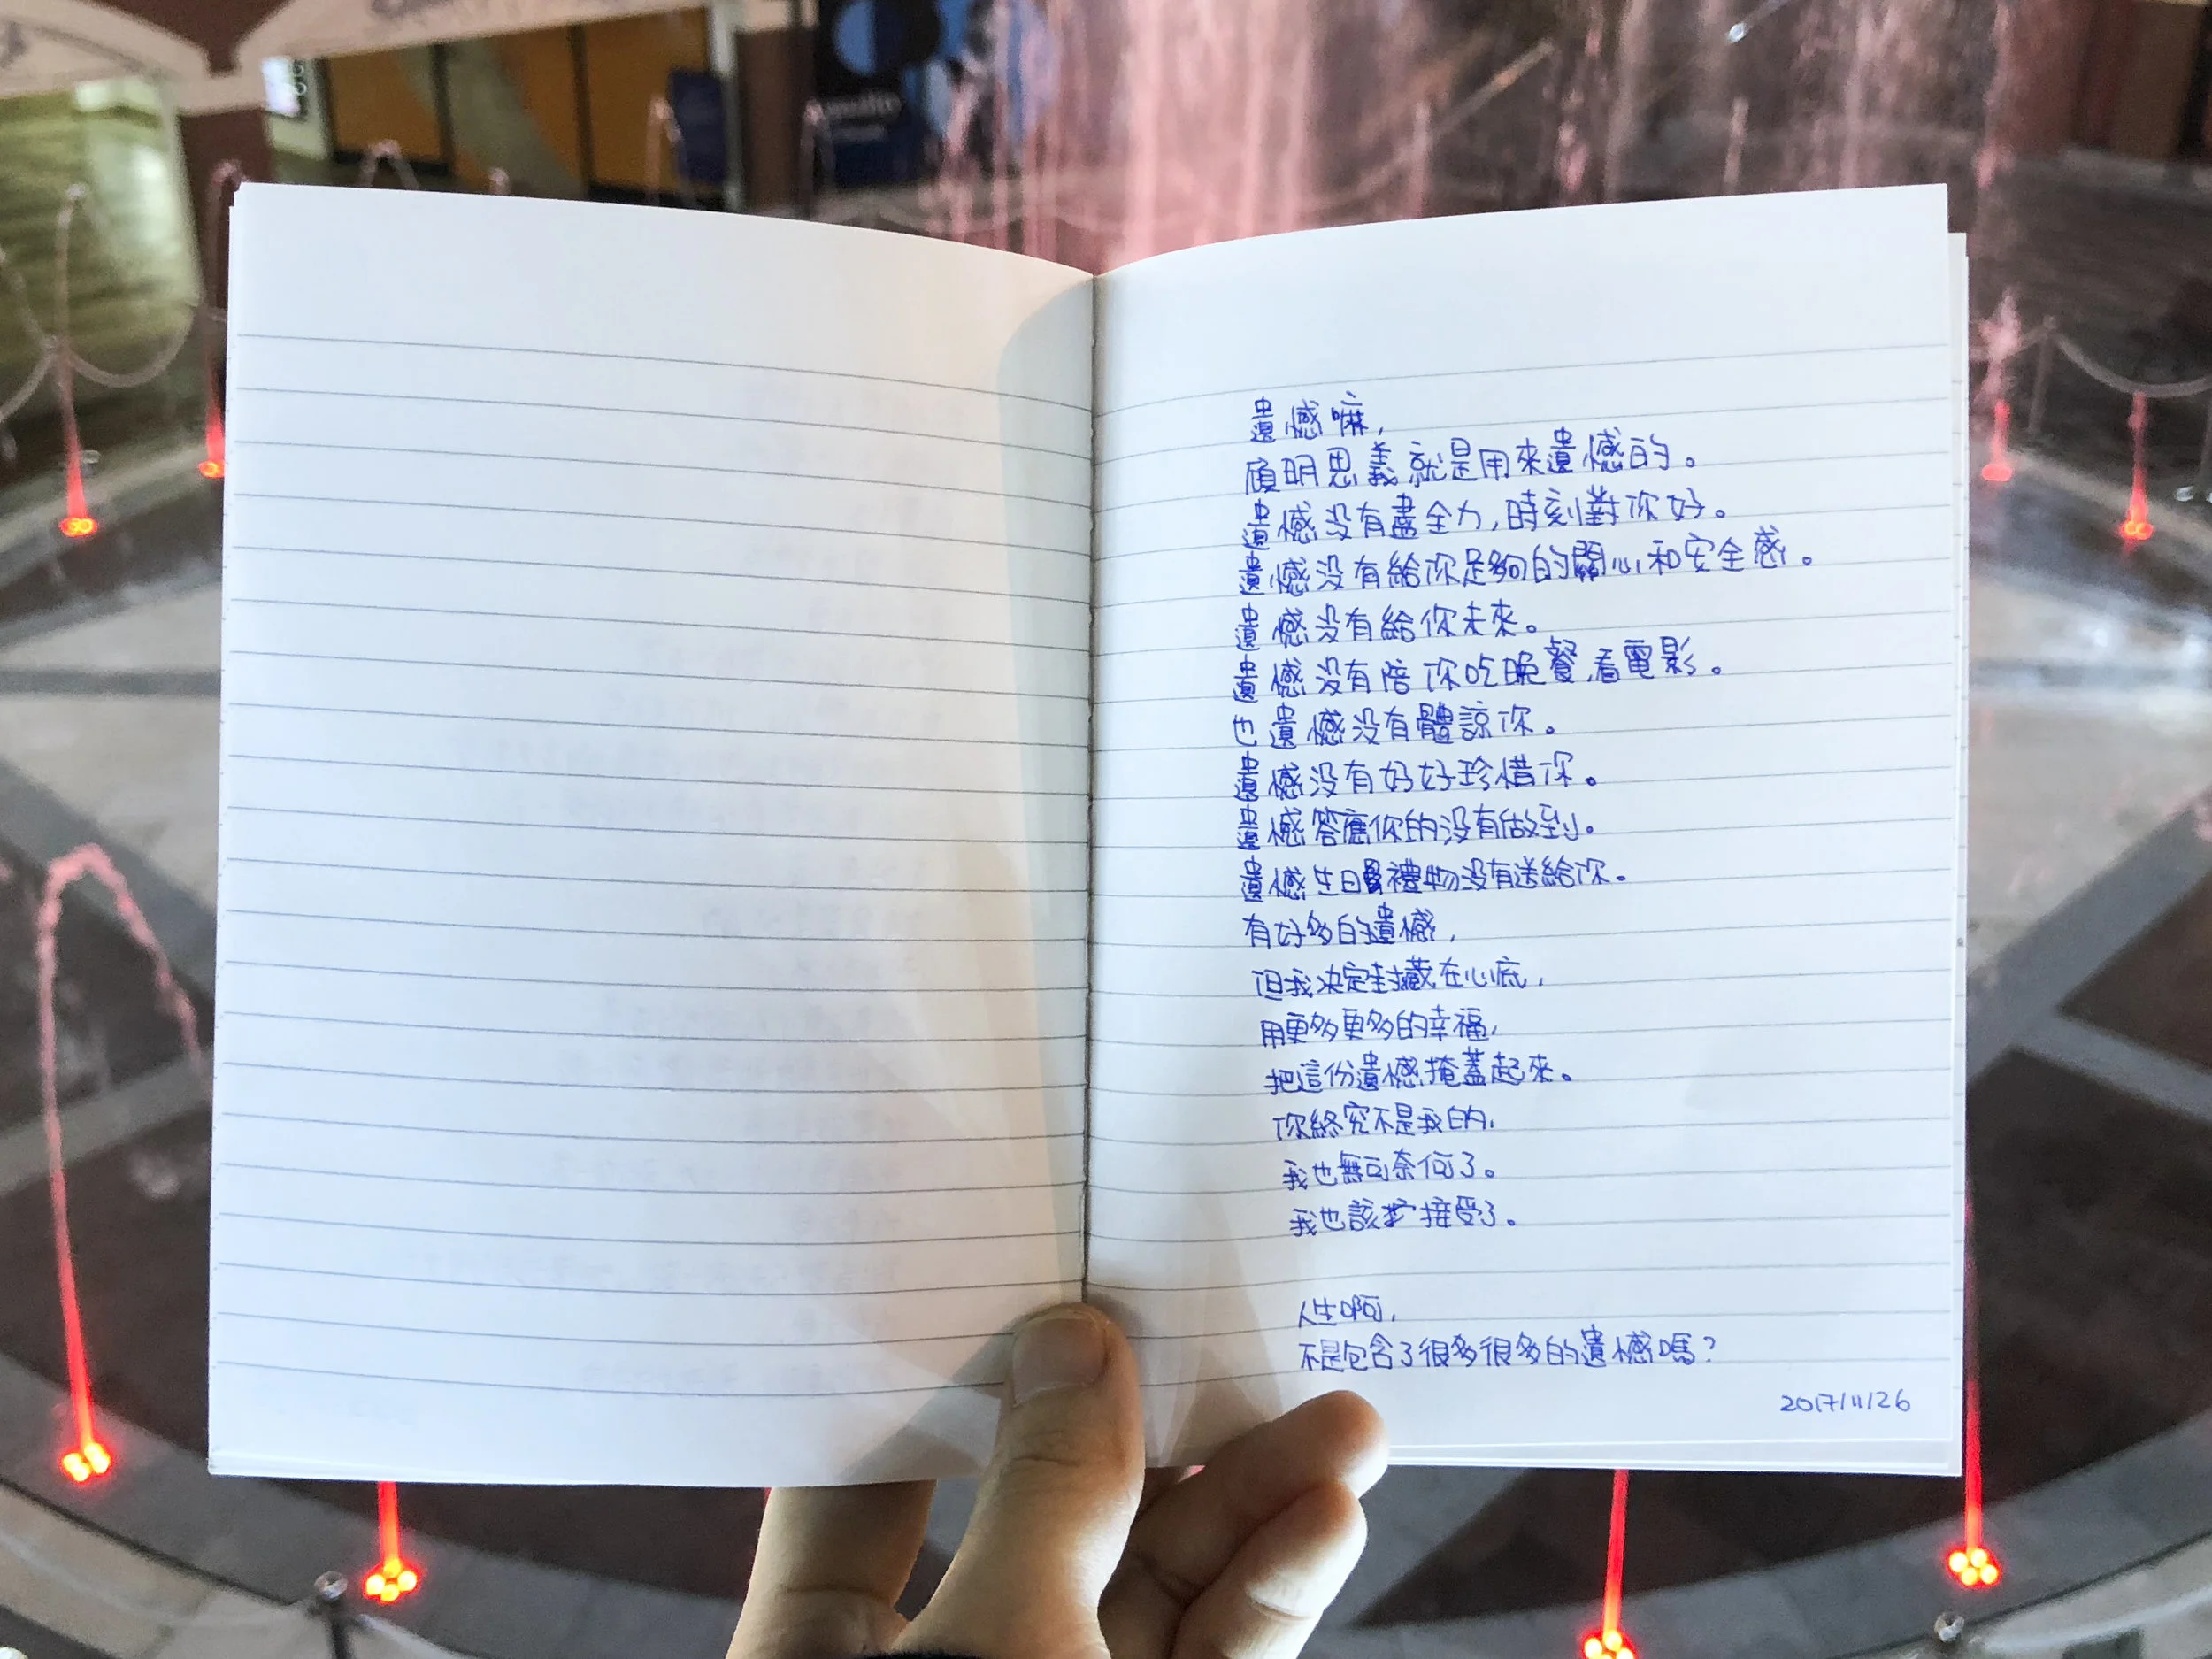 遺憾嘛,
顧明思義就是用來遺憾的。
遺憾没有盡全力,時刻對你好。
遺憾没有給你足夠的關心和安全感。
遺憾没有給你未來。
遺憾没有陪你吃晚餐,看電影。
也遺憾没有體諒你。
遺憾没有好好珍惜你。
遺憾答應你的没有做到。
遺憾生日禮物没有送給你。
有好多的遺憾,
但我決定封藏在心底,
用更多更多的幸福,
把這份遺憾掩蓋起來。
你終究不是我的,
我也無可奈何了。
我也該接受了。
人生啊,
不是包含了很多很多的遺憾嗎?
2017/11/26